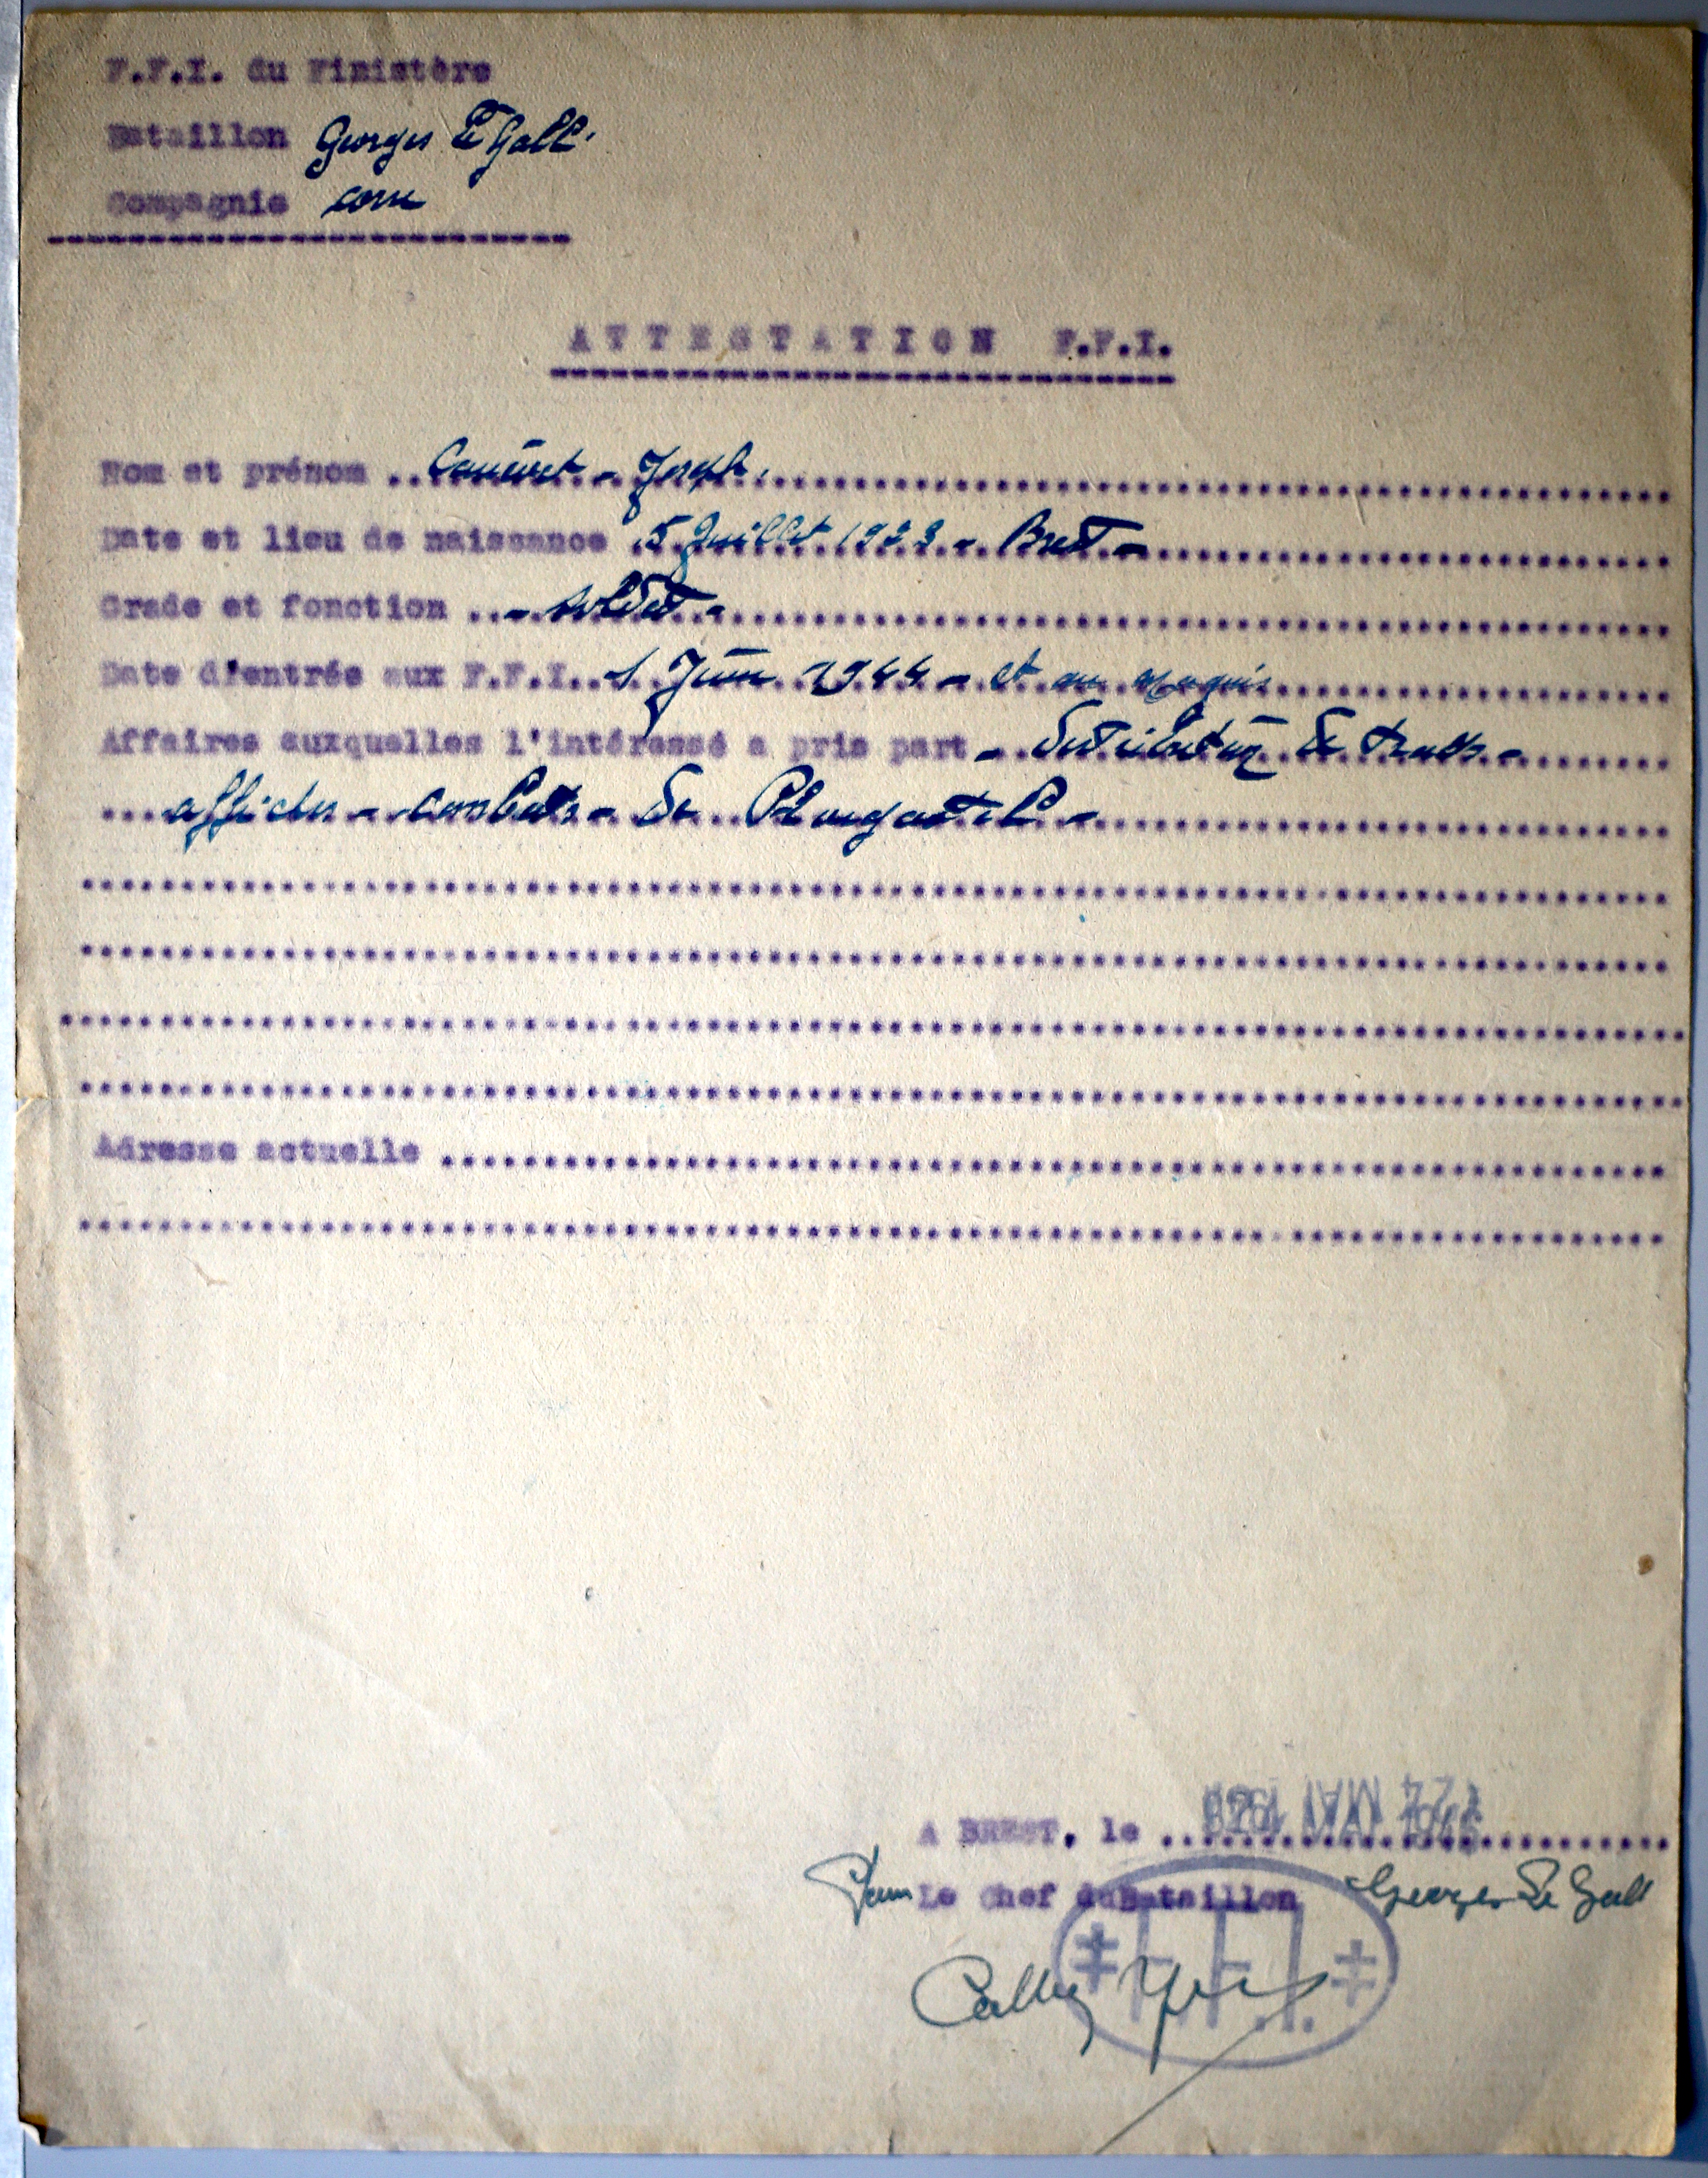 F.F.I. du Finistère
Bataillon Georges Le Gall
Compagnie
ATTESTATION F.F.I.
Nom et prénom .. Joseph
Date et lieu de naissance 5 Juillet 1923 - Brest -
Grade et fonction .. - soldat -
Date d'entrée aux F.F.I. 1 Juin 1944 - et au maquis
Affaires auxquelles l'intéressé a pris part - distribution de tracts -
affiches - combats - de Plougastel -
Adresse actuelle
A BREST, le MAI
Pour Le Chef du Bataillon Georges Le Gall
F.F.I.